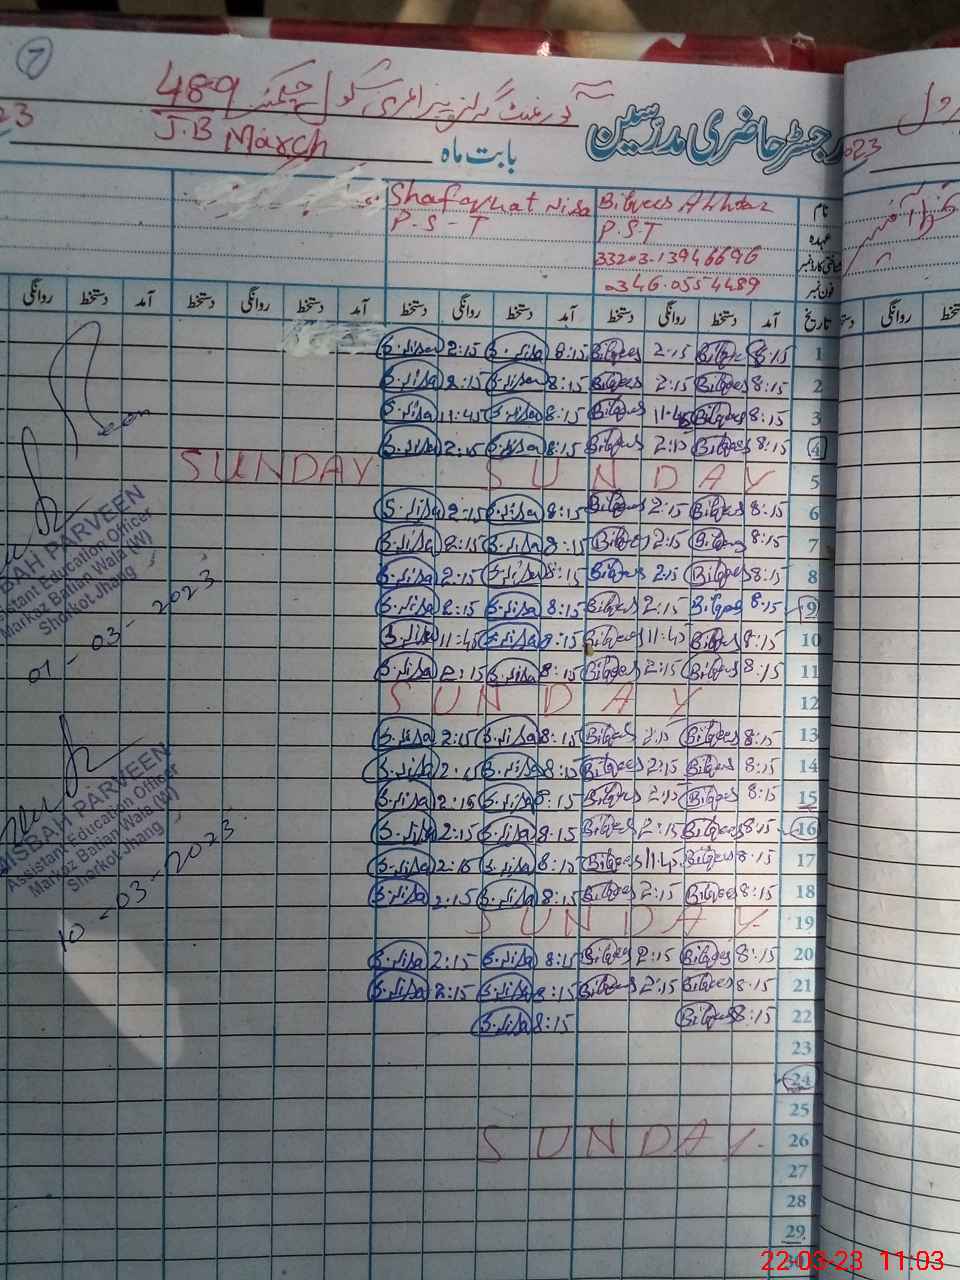 7
رجسٹر حاضری مدرسین
گورنمنٹ گرلز پرائمری سکول چک نمبر 489
J.B
بابت ماہ March
23
2023
نام Bilqees Akhtar Shafaqhat Nisa
عہدہ P.S.T P.S-T
شناختی کارڈ نمبر 33203-13946696
فون نمبر 0346-0554489
تاریخ آمد دستخط روانگی دستخط آمد دستخط روانگی دستخط آمد دستخط روانگی دستخط آمد دستخط روانگی
دستخط روانگی دستخط
1 8:15 Bilqees 2:15 Bilqees 8:15 S.Nisa 2:15 S.Nisa
2 8:15 Bilqees 2:15 Bilqees 8:15 S.Nisa 2:15 S.Nisa
3 8:15 Bilqees 11:45 Bilqees 8:15 S.Nisa 11:45 S.Nisa
4 8:15 Bilqees 2:15 Bilqees 8:15 S.Nisa 2:15 S.Nisa
5 SUNDAY SUNDAY
6 8:15 Bilqees 2:15 Bilqees 8:15 S.Nisa 2:15 S.Nisa
7 8:15 Bilqees 2:15 Bilqees 8:15 S.Nisa 2:15 S.Nisa
8 8:15 Bilqees 2:15 Bilqees 8:15 S.Nisa 2:15 S.Nisa
9 8:15 Bilqees 2:15 Bilqees 8:15 S.Nisa 2:15 S.Nisa
10 8:15 Bilqees 11:45 Bilqees 8:15 S.Nisa 11:45 S.Nisa
11 8:15 Bilqees 2:15 Bilqees 8:15 S.Nisa 2:15 S.Nisa
12 SUNDAY
13 8:15 Bilqees 2:15 Bilqees 8:15 S.Nisa 2:15 S.Nisa
14 8:15 Bilqees 2:15 Bilqees 8:15 S.Nisa 2:15 S.Nisa
15 8:15 Bilqees 2:15 Bilqees 8:15 S.Nisa 2:15 S.Nisa
16 8:15 Bilqees 2:15 Bilqees 8:15 S.Nisa 2:15 S.Nisa
17 8:15 Bilqees 11:45 Bilqees 8:15 S.Nisa 2:15 S.Nisa
18 8:15 Bilqees 2:15 Bilqees 8:15 S.Nisa 2:15 S.Nisa
19 SUNDAY
20 8:15 Bilqees 2:15 Bilqees 8:15 S.Nisa 2:15 S.Nisa
21 8:15 Bilqees 2:15 Bilqees 8:15 S.Nisa 2:15 S.Nisa
22 8:15 Bilqees 8:15 S.Nisa
23
24
25
26 SUNDAY
27
28
29
30
BAH PARVEEN
istant Education Officer
Markaz Bahan Wala (W)
Shorkot Jhang
01-03-2023
AISBAH PARVEEN
Assistant Education Officer
Markaz Bahan Wala (W)
Shorkot Jhang
10-03-2023
22-03-23 11:03